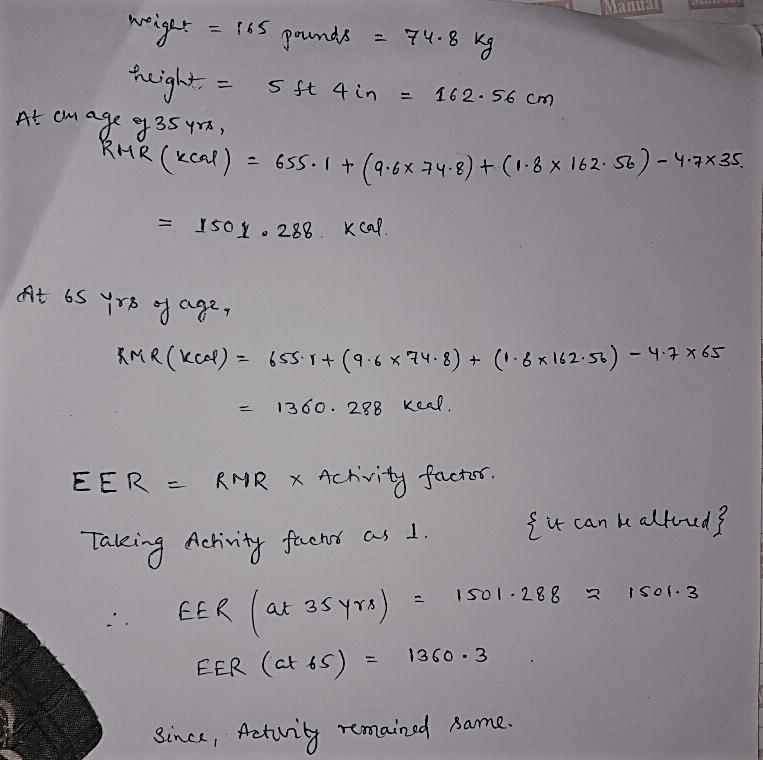 Manual
weight = 165 pounds = 74.8 kg
height = 5 ft 4 in = 162.56 cm
At an age of 35 yrs,
RMR (kcal) = 655.1 + (9.6 x 74.8) + (1.8 x 162.56) - 4.7 x 35.
= 1501.288. kcal.
At 65 yrs of age,
RMR (kcal) = 655.1 + (9.6 x 74.8) + (1.8 x 162.56) - 4.7 x 65
= 1360.288 kcal.
EER = RMR x Activity factor.
Taking Activity factor as 1. {it can be altered}
∴ EER (at 35 yrs) = 1501.288 ≈ 1501.3
EER (at 65) = 1360.3
Since, Activity remained same.